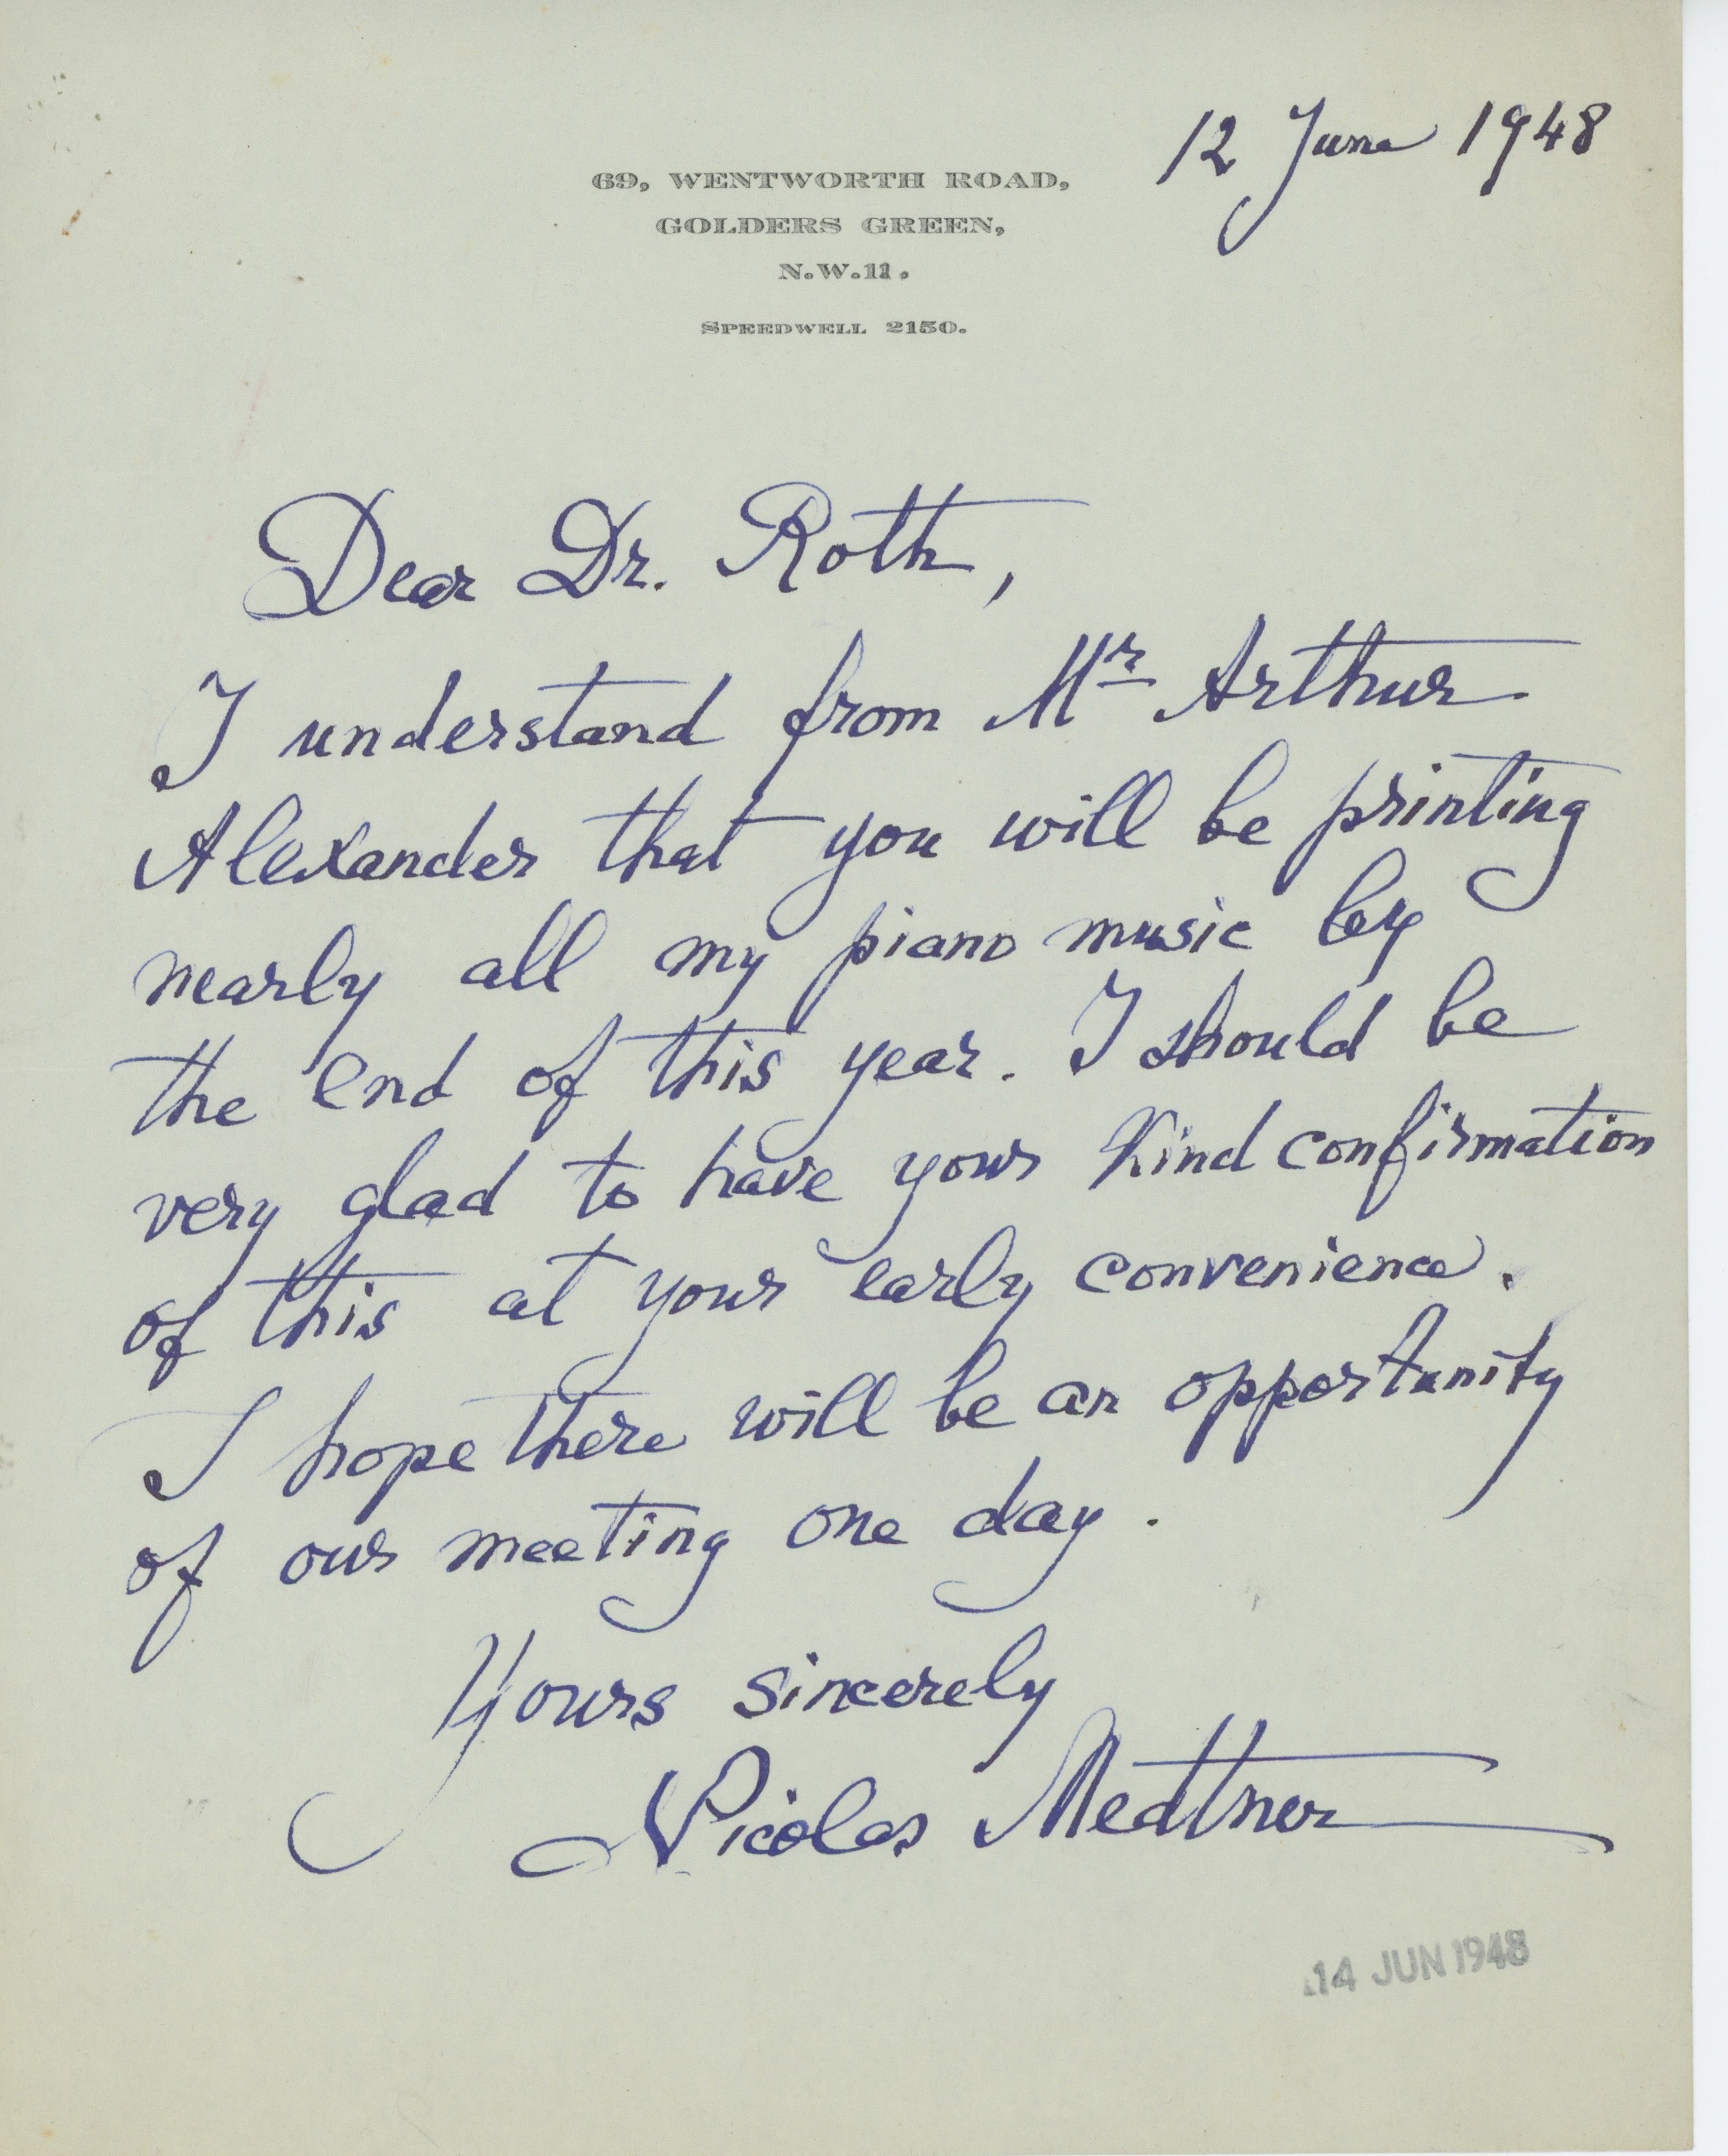 12 June 1948
69, WENTWORTH ROAD,
GOLDERS GREEN,
N.W.11.
SPEEDWELL 2150.
Dear Dr. Roth,
I understand from Mr Arthur
Alexander that you will be printing
nearly all my piano music by
the end of this year. I should be
very glad to have your kind confirmation
of this at your early convenience.
I hope there will be an opportunity
of our meeting one day.
Yours sincerely
Nicolas Medtner
14 JUN 1948